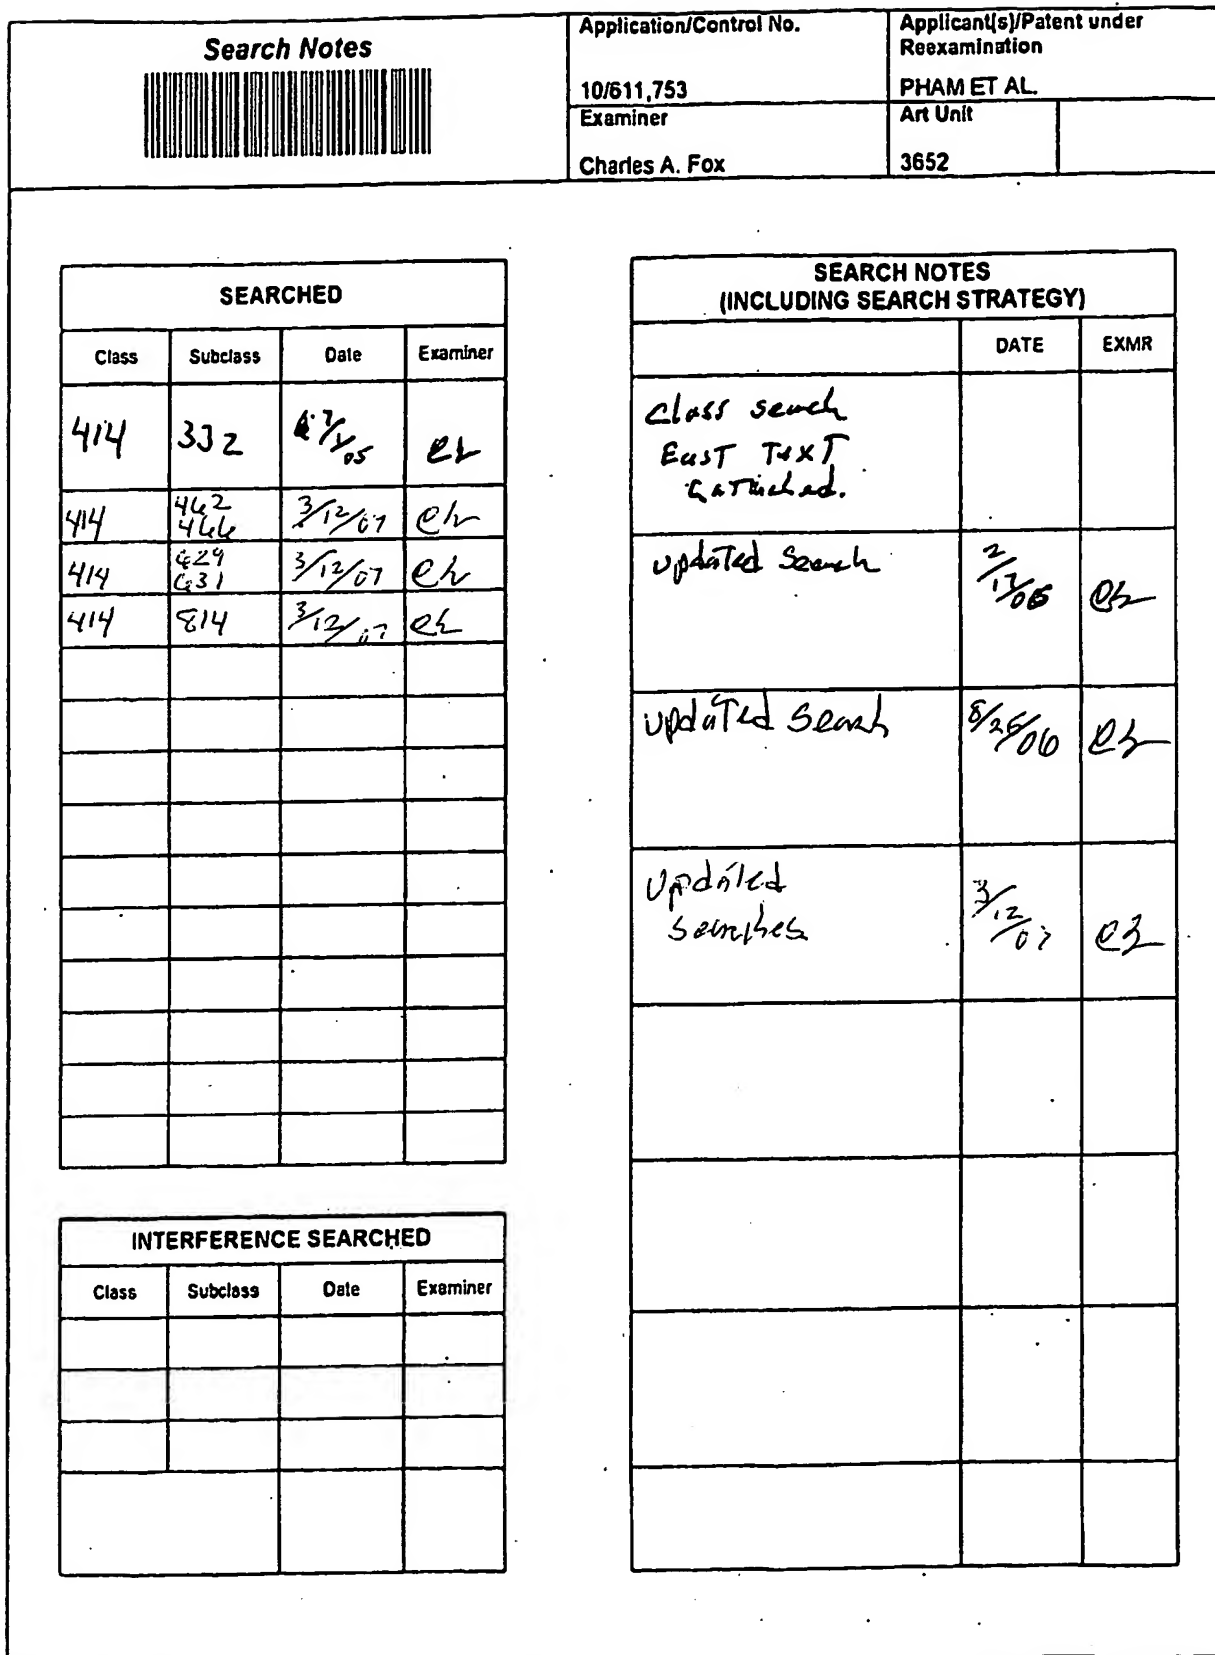 Search Notes
Application/Control No.
10/611,753
Applicant(s)/Patent under
Reexamination
PHAM ET AL.
Examiner
Charles A. Fox
Art Unit
3652
SEARCHED
Class Subclass Date Examiner
414 332
414 462
466 3/12/07
414 3/12/07
414 814 3/12/07
INTERFERENCE SEARCHED
Class Subclass Date Examiner
SEARCH NOTES
(INCLUDING SEARCH STRATEGY)
DATE EXMR
Class search
East Text
attached.
updated Search
updated Search
06
updated
searches 3/12/07